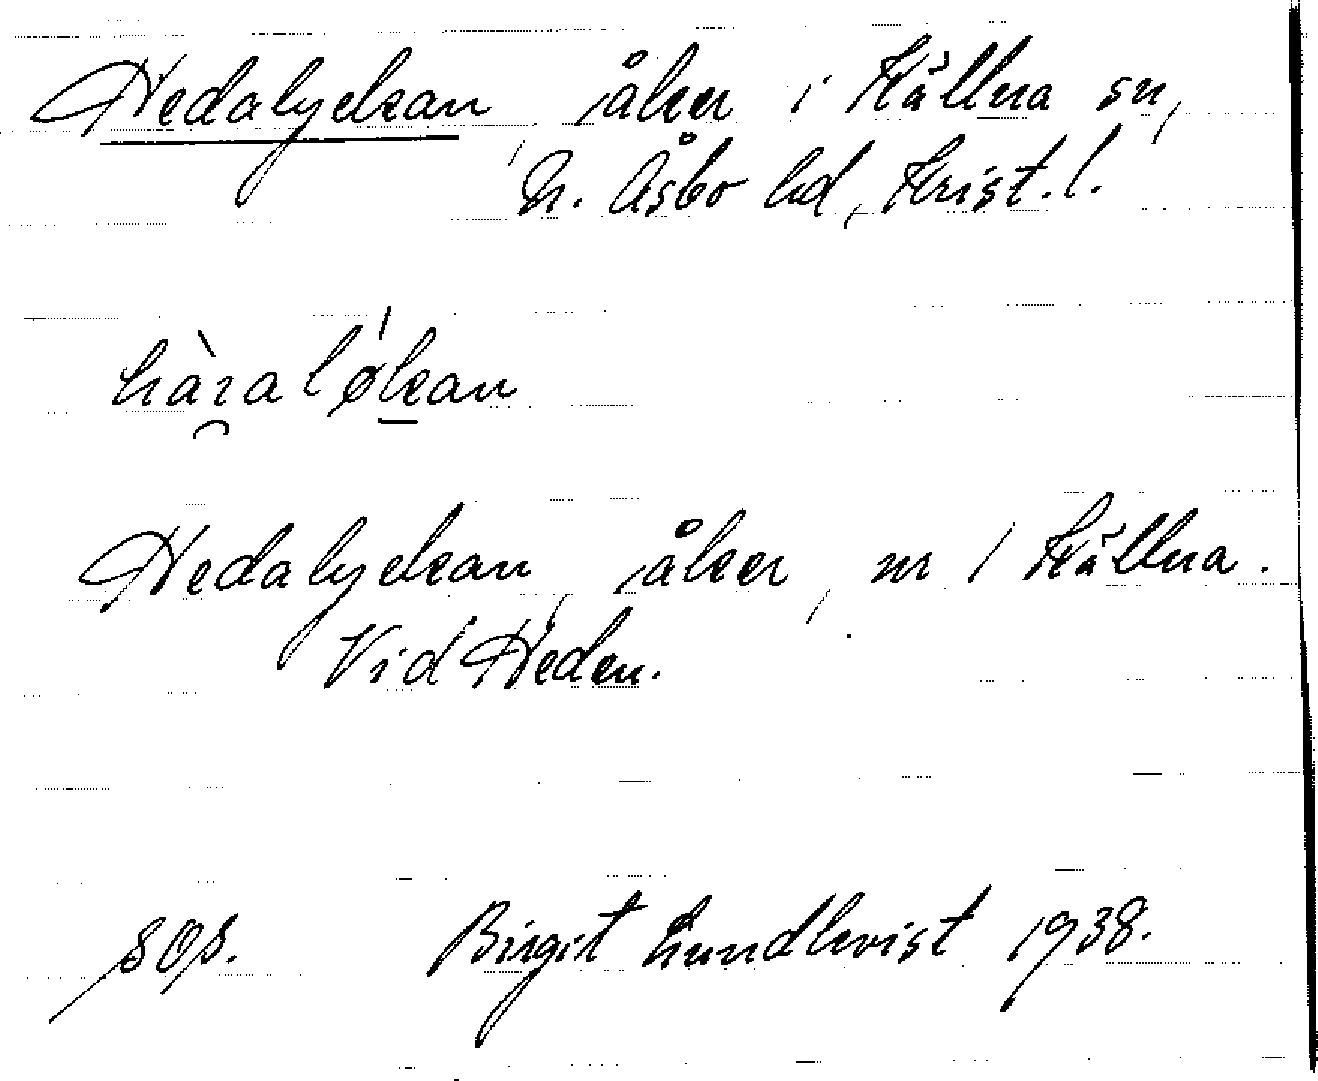 Hedalyckan, åker i Källna sn,
N. Åsbo hd, Krist. l.
hàꝛalǿkan
Hedalyckan, åker, nr 1 Källna.
Vid Heden.
Birgit Lundkvist 1938.